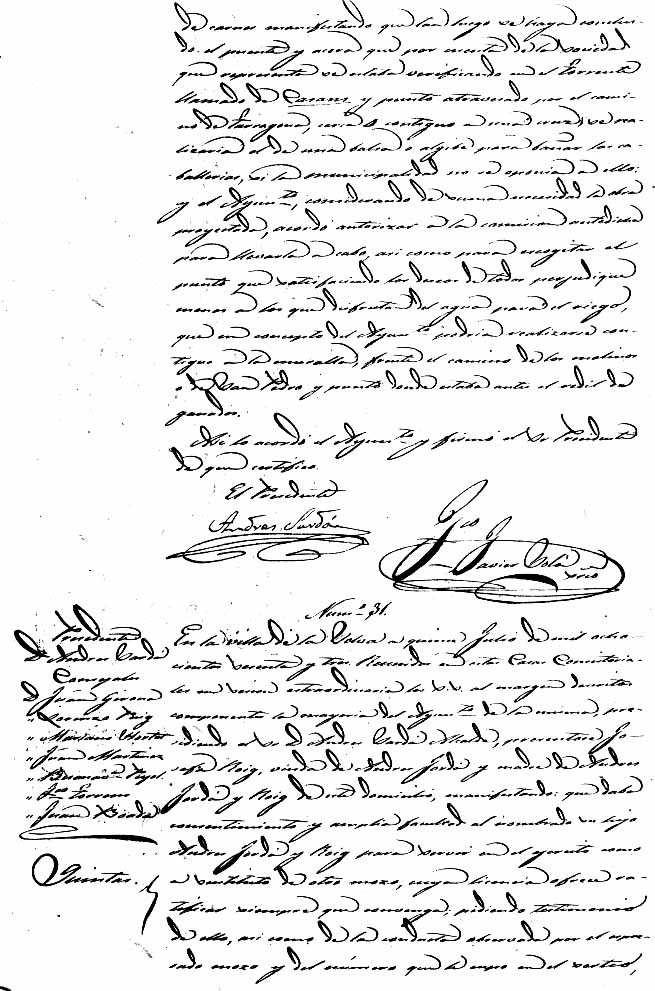 de carnes manifestando que tan luego se haya conclui-
do el puente y acera que por cuenta de la sociedad
que representa se estaba verificando en el torrente
llamado de Casans y punto atravesado por el cami-
no de Tarragona, cerca o contiguo a una cruz, se rea-
lizaria el de una balsa o algibe para bañar las ca-
ballerias, si la municipalidad no se oponia a ello:
y el Ayunt.to, considerando de suma necesidad la obra
proyectada, acordó autorizar a la comision antedicha
para llevarla a cabo, asi como para escogitar el
punto que satisfaciendo los deseos de todos perjudique
menos a los que disfrutan del agua para el riego,
que en concepto del Ayunt.to podria realizarse con-
tiguo a la muralla, frente el camino de los molinos
o de San Pedro y punto donde estaba antes el redil de
ganados.
Asi lo acordó el Ayunt.to y firmó el Sr Presidente
de que certifico.
El Presidente
Andres Sardá
Fco Javier
srio
Num.o 31.
Presidente
D. Andres Sardá
Concejales
D. Juan Girona
" Lorenzo Roig
" Mariano
" Juan Martinez
" Pujol
" Fco
" Juan
Quintas.
En la villa de la Selva a quince Julio de mil ocho-
cientos sesenta y tres Reunidos en estas Casas Consistoria-
les en sesion estraordinaria los S.S. al margen descritos
componentes la mayoria del Ayunt.to de la misma, pre-
sidiendo el Sr D. Andres Sardá Alcalde, presentose Jo-
sefa Roig, viuda de Andres Jordá y madre de Andres
Jordá y Roig de este domicilio, manifestando: que daba
consentimiento y amplia facultad al nombrado su hijo
Andres Jordá y Roig para servir en el ejercito como
a sustituto de otro mozo, cuya licencia ofrece ra-
tificar siempre que convenga, pidiendo testimonio
de ello, asi como de la conducta observada por el espre-
sado mozo y del número que le cupo en el sorteo,